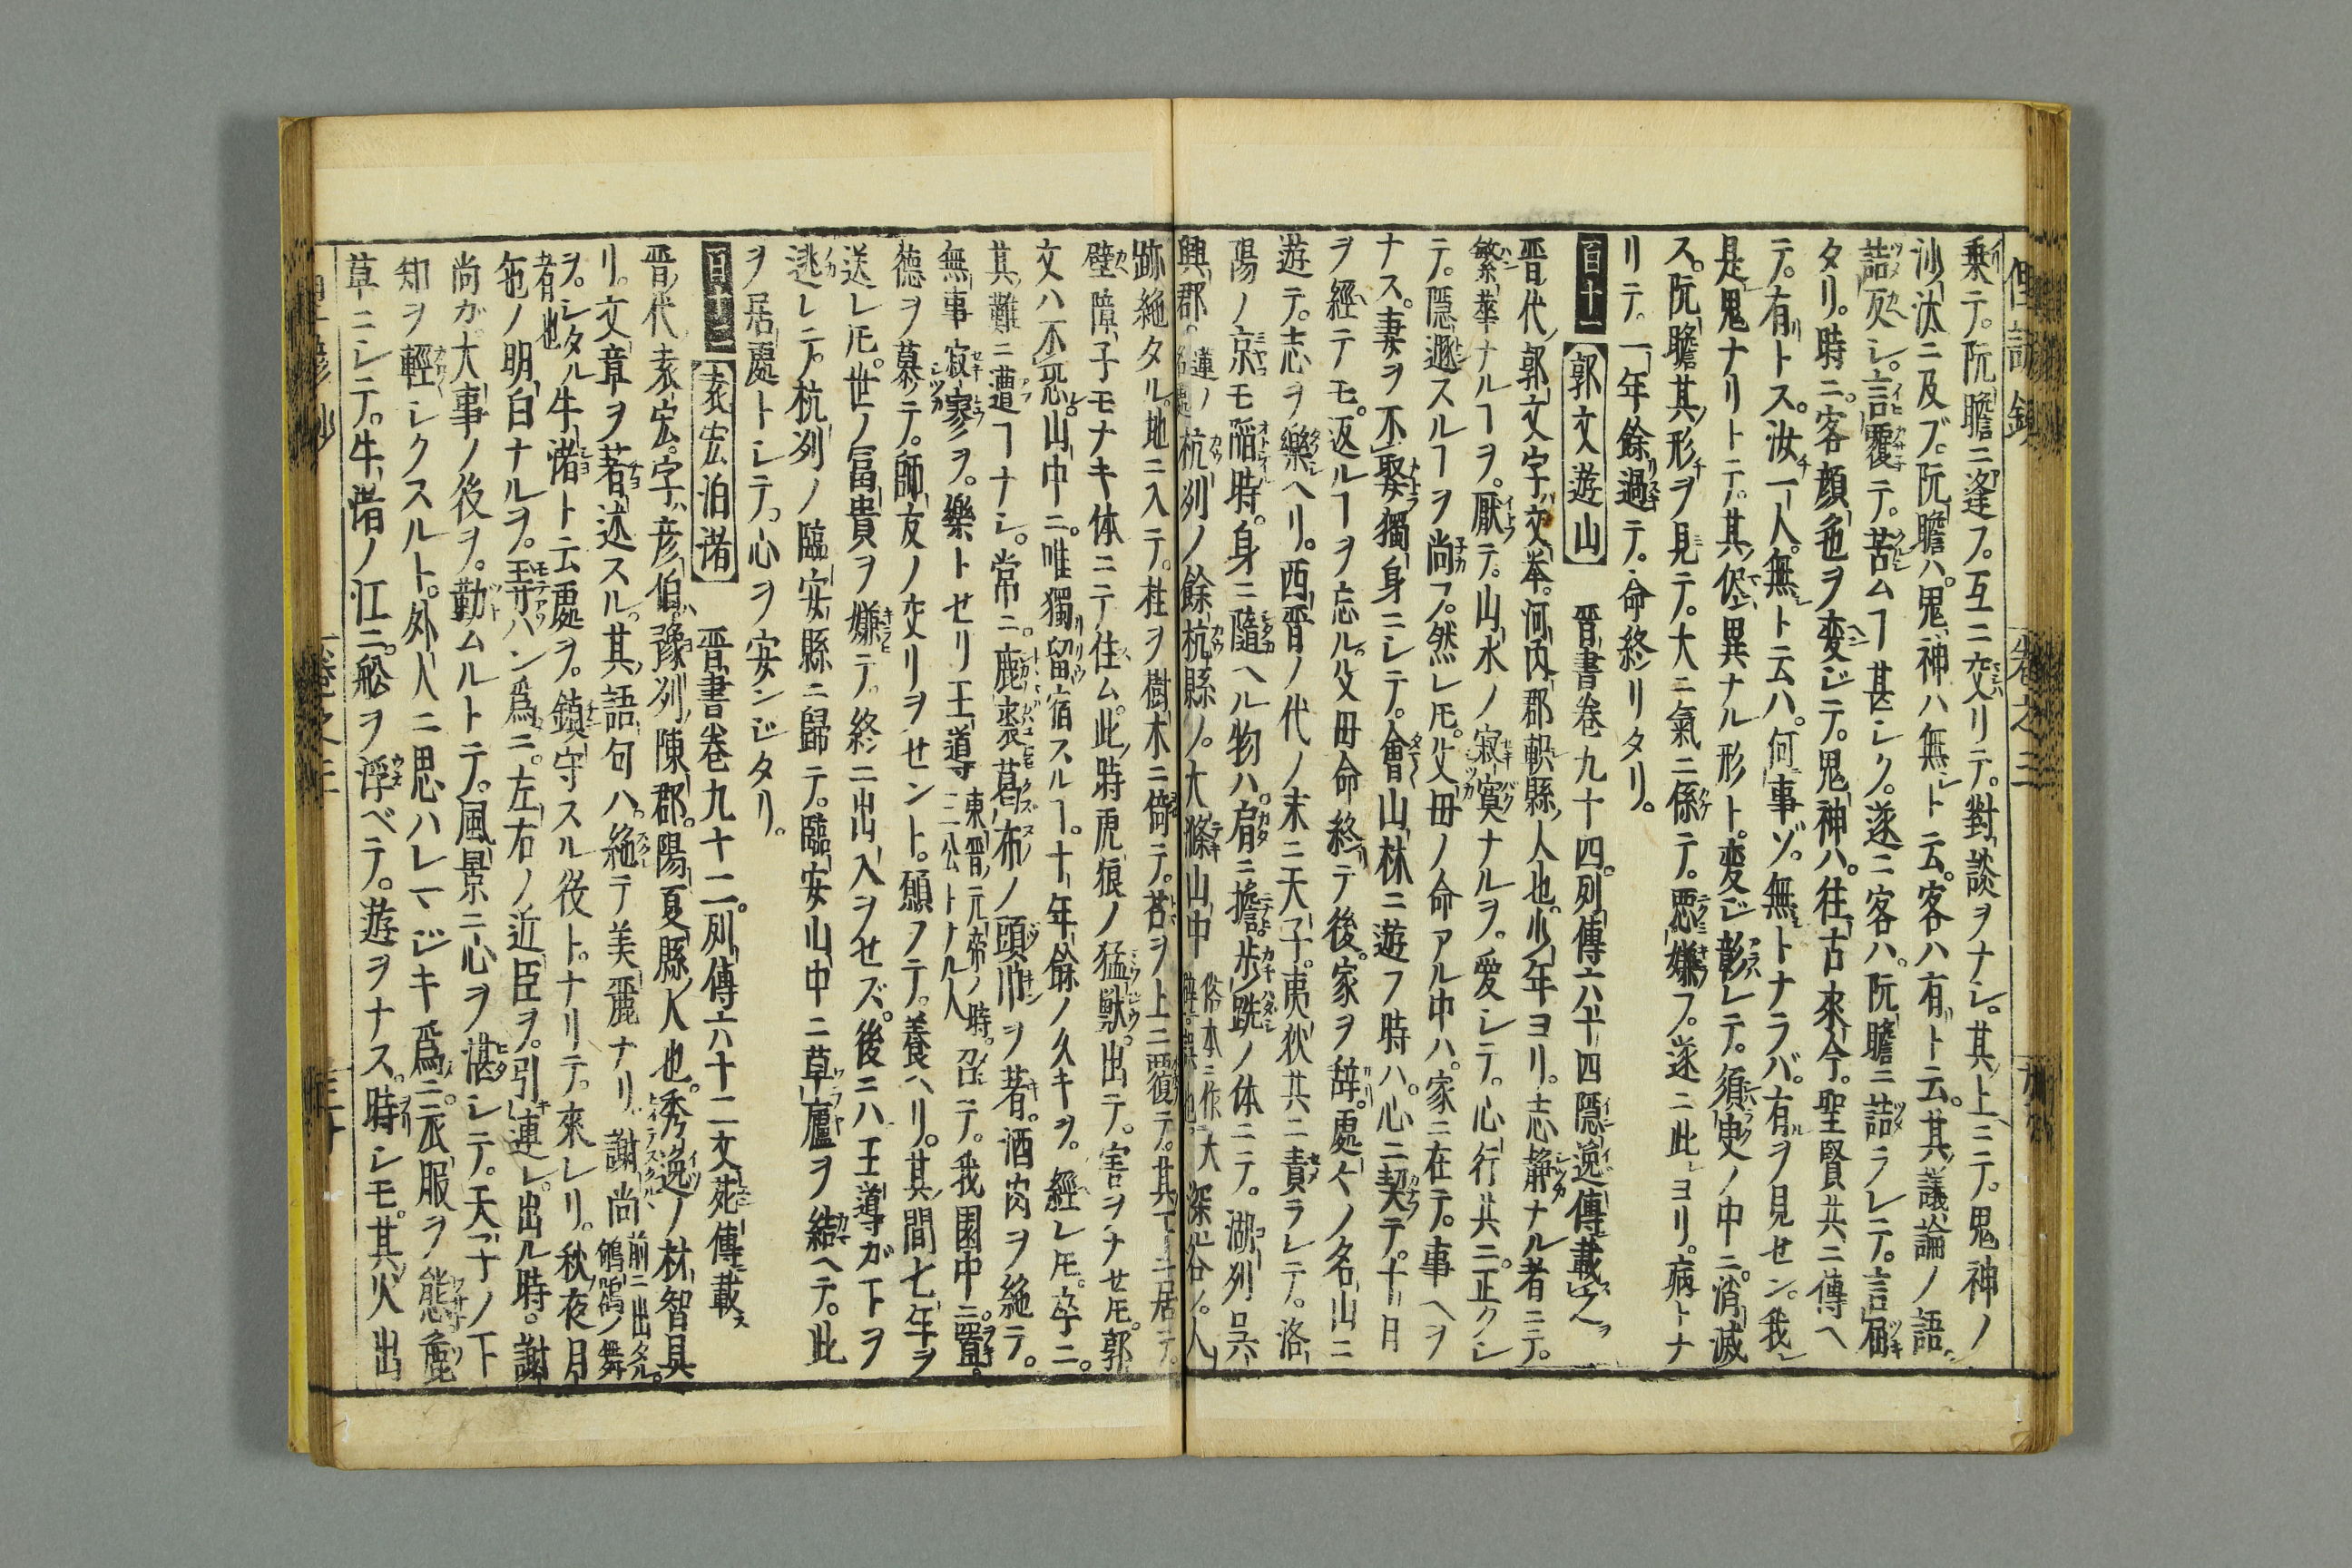 乗テ。阮瞻ニ逢フ。互ニ交リテ。對談ヲナシ。其上ニテ。鬼神ノ
沙汰ニ及ブ。阮瞻ハ。鬼神ハ無ト云。客ハ有ト云。其議論ノ語
詰反シ。言覆テ。苦ムヿ甚シク。遂ニ客ハ。阮瞻ニ詰ラレテ。言屈
タリ。時ニ。客顔色ヲ変ジテ。鬼神ハ。往古來今。聖賢共ニ傳ヘ
テ。有トス。汝一人。無ト云ハ。何事ゾ。無トナラバ。有ヲ見セン。我
是鬼ナリトテ。其侭異ナル形ト。変ジ彰レテ。須臾ノ中ニ。消滅
ス。阮瞻其形ヲ見テ。大ニ氣ニ係テ。悪嫌フ。遂ニ此ヨリ。病トナ
リテ。一年餘過テ。命終リタリ。
百十一 郭文遊山 晋書巻九十四。列傳六十四隱逸傳載
晋代郭文字文挙。河内郡軹縣人也。少年ヨリ。志静ナル者ニテ。
繁華ナルヿヲ。厭テ。山水ノ寂寞ナルヲ。愛シテ。心行共ニ。正クシ
テ。隱遯スルヿヲ尚フ。然レ𪜈。父母ノ命アル中ハ。家ニ在テ。事ヘヲ
ナス。妻ヲ不娶獨身ニシテ。會山林ニ遊フ時ハ。心ニ契テ。十日
ヲ經テモ。返ルヿヲ忘ル。父母命終テ後。家ヲ辞。處々ノ名山ニ
遊テ。志ヲ樂ヘリ。西晋ノ代ノ末ニ天子。夷狄共ニ責ラレテ。洛
陽ノ京モ陷時。身ニ隨ヘル物ハ。肩ニ擔歩跣ノ体ニテ。湖列呉
興郡。蓮ノ杭列ノ餘杭縣ノ。大滌山中 俗本ニ作大 深谷ノ。人
跡絶タル。地ニ入テ。柱ヲ樹木ニ倚テ。苫ヲ上ニ覆テ。其下ニ居テ。
壁障子モナキ体ニテ住ム。此時虎狼ノ猛獣。出テ。害ヲナセ𪜈。郭
文ハ不恐。山中ニ。唯獨留宿スルヿ。十年餘ノ久キヲ。經レ𪜈。卒ニ。
其難ニ遭ヿナシ。常ニ。鹿裘葛布ノ頭巾ヲ著。酒肉ヲ絶テ。
無事寂寥ヲ。樂トセリ王導 東晋元帝ノ時。三公トナル人 召テ。我園中ニ。置。
德ヲ慕テ。師友ノ交リヲセント。願フテ。養ヘリ。其間七年ヲ
送レ𪜈。世ノ冨貴ヲ嫌テ。終ニ出入ヲセズ。後ニハ王導ガ下ヲ
逃レテ。杭列ノ臨安縣ニ歸テ。臨安山中ニ草廬ヲ結ヘテ。此
ヲ居處トシテ。心ヲ安ンジタリ。
百十二 袁宏泊渚 晋書巻九十二。列傳六十二文苑傳載
晋代袁宏。字彦伯。豫列陳郡。陽夏縣人也。秀逸ノ材智具
リ。文章ヲ著述スル。其語句ハ。絶テ美麗ナリ。謝尚 前ニ出タル。鴝鵒ノ舞者也
ヲ。シタル牛渚ト云處ヲ。鎮守スル役ト。ナリテ。來レリ。秋夜月
色ノ明白ナルヲ。玩ハン爲ニ。左右ノ近臣ヲ。引連レ。出ル時。謝
尚ガ。大事ノ役ヲ。勤ムルトテ。風景ニ心ヲ湛シテ。天下ノ下
知ヲ輕シクスルト。外人ニ思ハレマジキ爲ニ。衣服ヲ態麁
草ニシテ。牛渚ノ江ニ。舩ヲ浮ベテ。遊ヲナス。時シモ。其火出